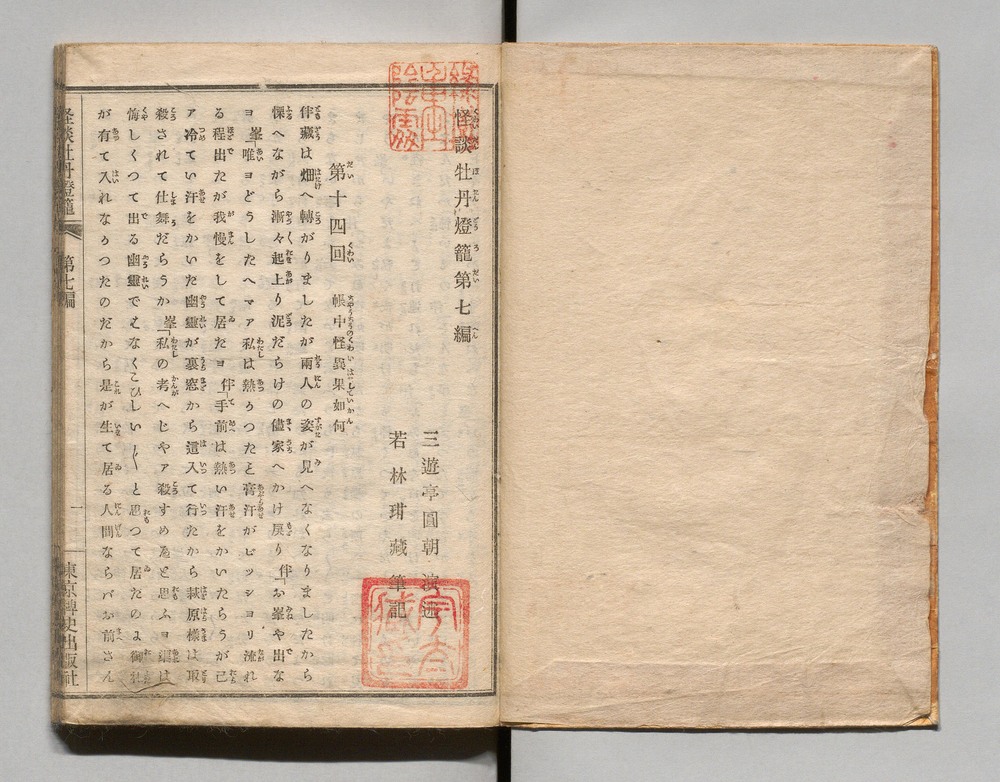 怪談牡丹燈籠第七編
三遊亭圓朝 演述
若林玵藏 筆記
第十四回 帳中怪異果如何
伴藏は畑へ轉がりましたが兩人の姿が見へなくなりましたから
慄へながら漸々起上り泥だらけの儘家へかけ戻り 伴「お峯や出な
ヨ 峯「唯ヨどうしたヘマア私は熱つたと膏汗がビッショリ流れ
る程出たが我慢をして居たヨ 伴「手前は熱い汗をかいたらうが己
ア冷てい汗をかいた幽靈が裏窓から這入て行たから萩原様は取
殺されて仕舞だらうか 峯「私の考へじやア殺すめへと思ふヨ
悔しくつて出る幽靈でハなくこひしい〱と思つて居たのよ御
が有て入れなかつたのだから是が生て居る人間ならバお前さん
怪談牡丹燈籠 第七編 一 東京稗史出版社